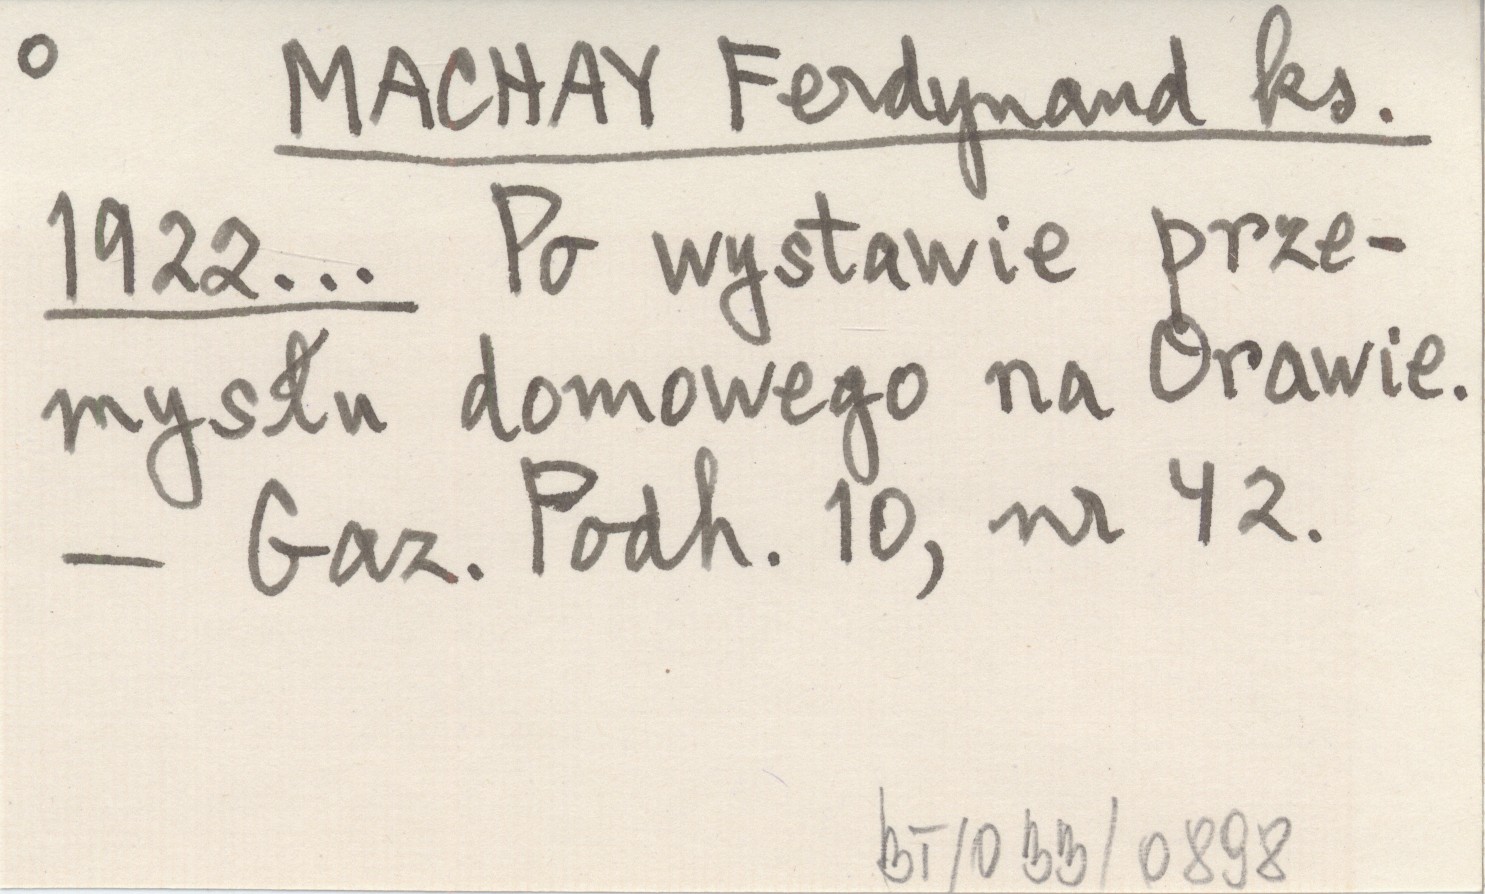 o MACHAY Ferdynand ks.
1922... Po wystawie prze-
mysłu domowego na Orawie.
— Gaz. Podh. 10, nr 42.
BT/033/0898